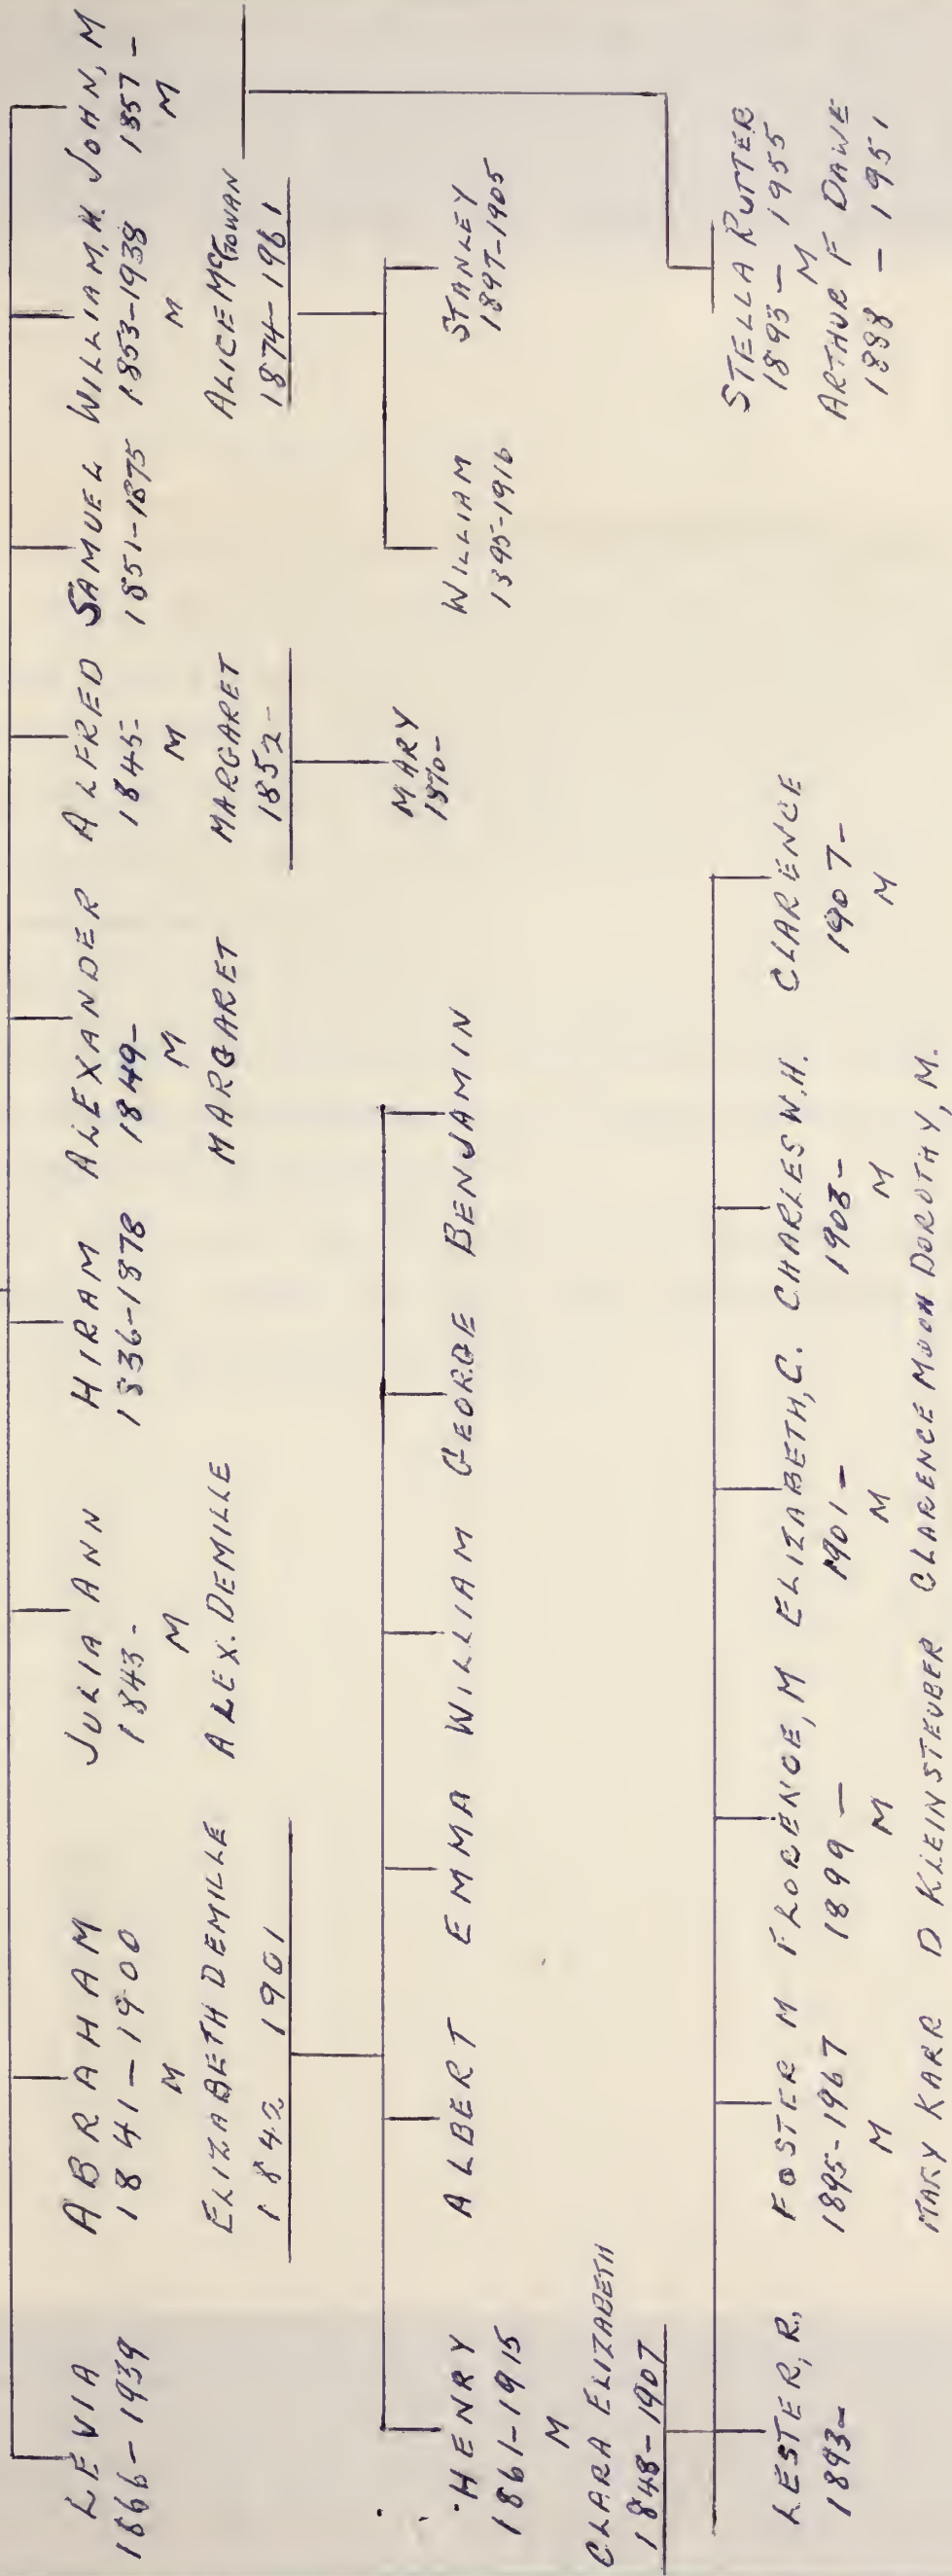 LEVIA
1866-1939
ABRAHAM
1841-1900
M
ELIZABETH DEMILLE
1842 1901
JULIA ANN
1843-
M
ALEX. DEMILLE
HIRAM
1836-1878
ALEXANDER
1849-
M
MARGARET
ALFRED
1845-
M
MARGARET
1852-
SAMUEL
1851-1875
WILLIAM, H.
1853-1938
M
ALICE McGOWAN
1874-1961
JOHN, M
1857-
M
HENRY
1861-1915
M
CLARA ELIZABETH
1848-1907
ALBERT
EMMA
WILLIAM
GEORGE
BENJAMIN
MARY
1870-
WILLIAM
1895-1916
STANLEY
1897-1905
LESTER, R,
1893-
FOSTER M
1895-1967
M
MARY KARR
FLORENCE, M
1899-
M
D KLEINSTEUBER
ELIZABETH, C.
1901-
M
CLARENCE MOON
CHARLES W.H.
1903-
M
DOROTHY, M.
CLARENCE
1907-
M
STELLA RUTTER
1893-1955
M
ARTHUR F DAWE
1888-1951